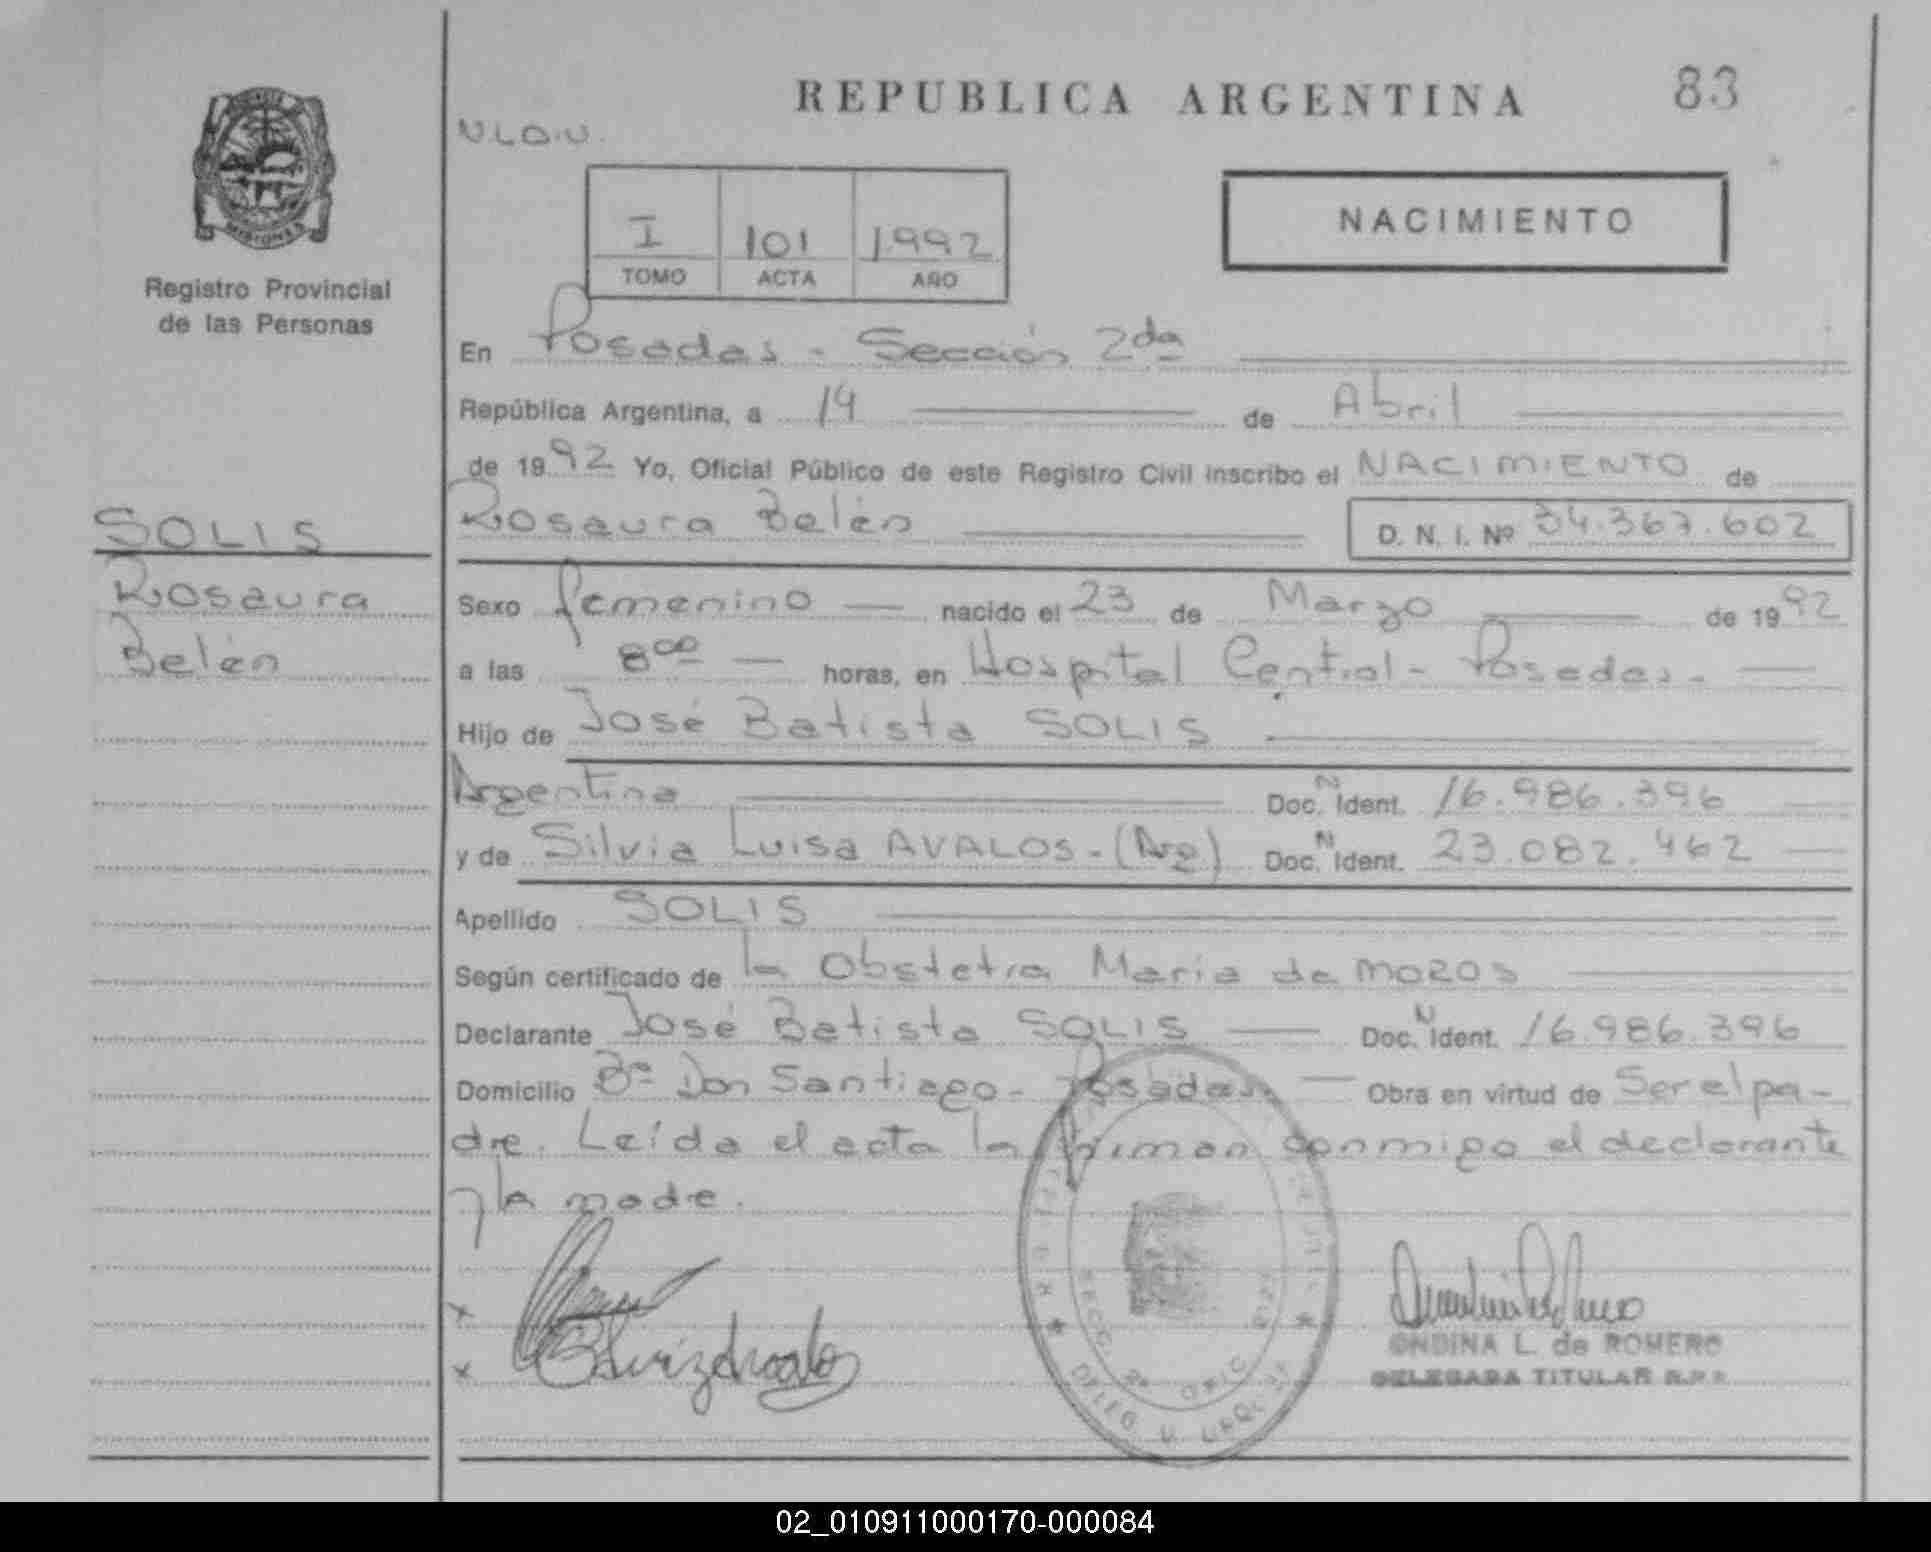 REPUBLICA ARGENTINA
83
MISIONES
Registro Provincial
de las Personas
I 101 1992
TOMO ACTA AÑO
NACIMIENTO
En Posadas - Sección 2da
República Argentina, a 14 de Abril
de 1992 Yo, Oficial Público de este Registro Civil inscribo el NACIMIENTO de
Rosaura Belén D. N. I. Nº 34.367.602
SOLIS
Rosaura
Belén
Sexo femenino nacido el 23 de Marzo de 1992
a las 8 00 horas, en Hospital Central - Posadas -
Hijo de José Batista SOLIS
Argentina Doc. N Ident. 16.986.396
y de Silvia Luisa AVALOS - (Arg) Doc. N Ident. 23.082.462
Apellido SOLIS
Según certificado de la Obstetra Maria de Mozos
Declarante José Batista SOLIS Doc. N Ident. 16.986.396
Domicilio Bº Don Santiago - Posadas. Obra en virtud de Ser el pa-
dre. Leída el acta la firman conmigo el declarante
y la madre.
ONDINA L. de ROMERO
DELEGADA TITULAR R.P.P.
02_010911000170-000084